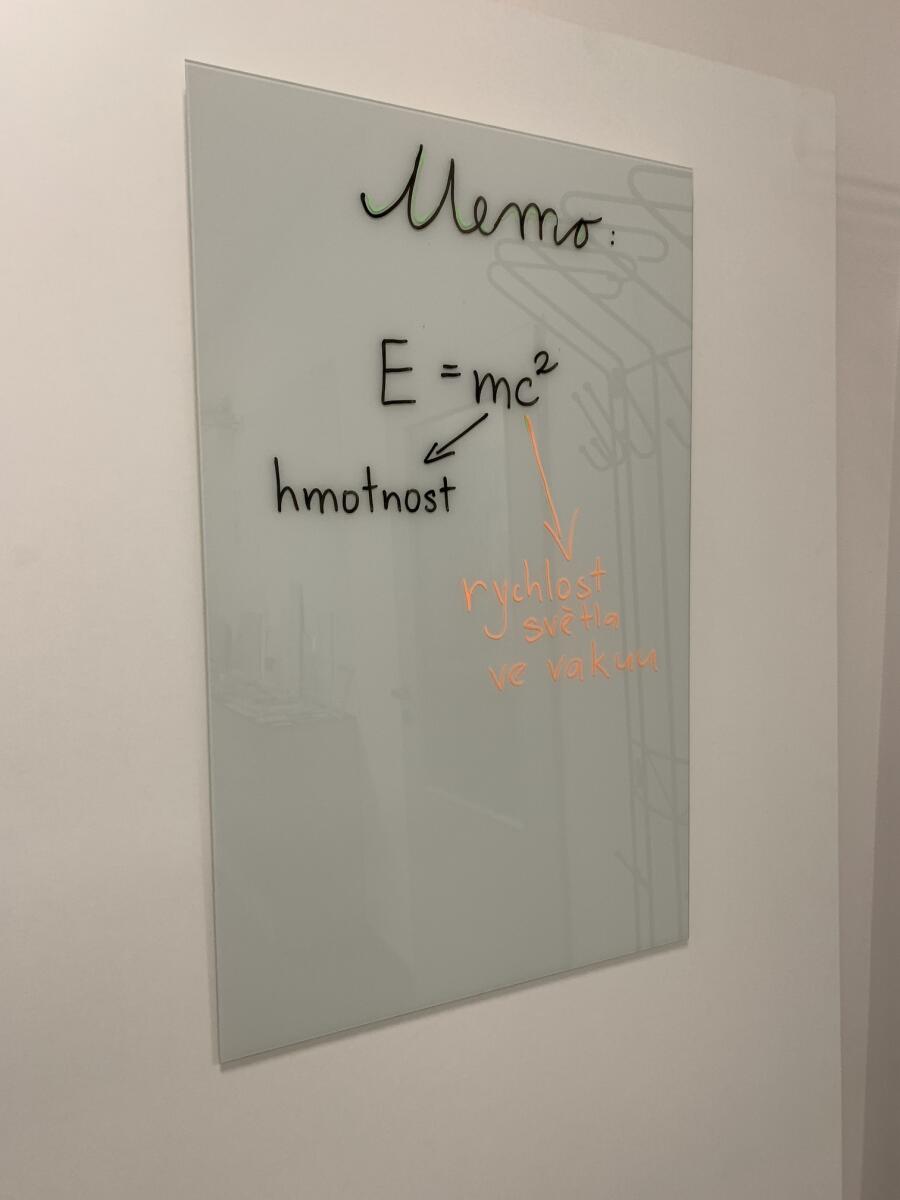 Memo:
E = mc²
hmotnost
rychlost
světla
ve vakuu